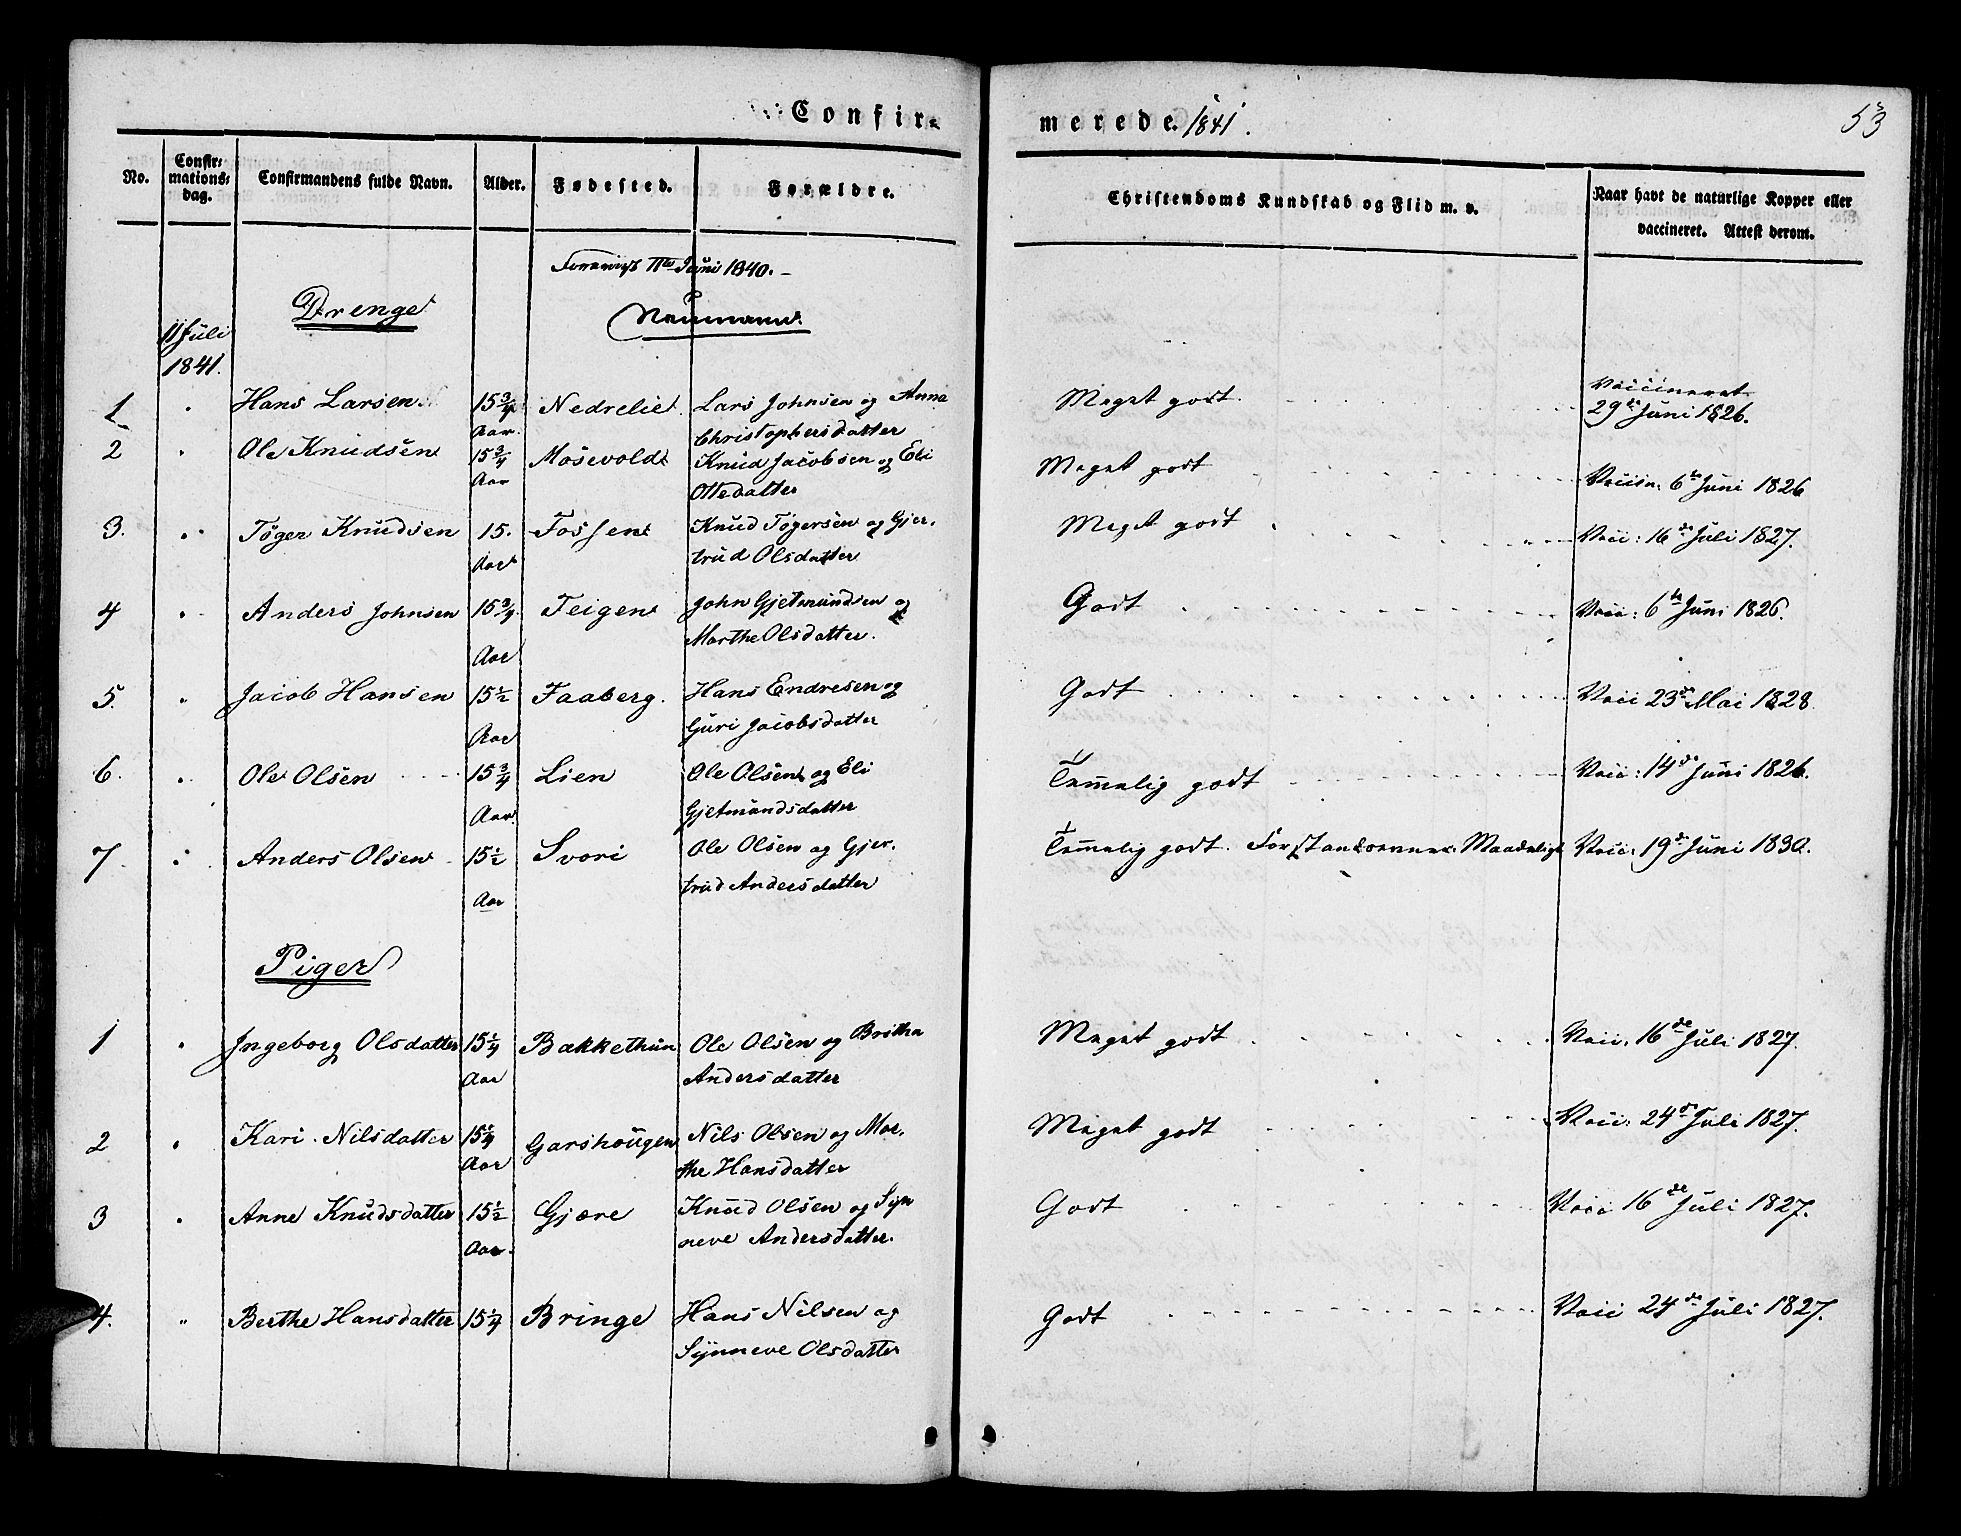 Confir-
merede. 1841.
53
No.
Confir-
mations-
dag.
Confirmandens fulde Navn.
Alder.
Fødested.
Forældre.
Christendoms Kundskab og Flid m. v.
Naar havt de naturlige Kopper eller
vaccineret. Attest derom.
11te Juni 1840. -
Drenge
Neumann.
11 Juli
1841.
1 " Hans Larsen 15 3/4 Nedrelie Lars Johnsen og Anna Meget godt. Vaccineret
Aar. Christophersdatter 29de Juni 1826.
2 " Ole Knudsen 15 3/4 Mosevold Knud Jacobsen og Eli Meget godt Vaccin. 6te Juni 1826
Aar Ottedatter
3. " Tøger Knudsen 15. Fossen Knud Tøgersen og Gjer- Meget godt Vacc: 16de Juli 1827.
Aar trud Olsdatter
4 " Anders Johnsen 15 3/4 Teigen John Gjetmundsen og Godt Vacc: 6te Juni 1826.
Aar Marthe Olsdatter.
5. " Jacob Hansen 15 1/2 Faaberg. Hans Endresen og Godt Vacc 23de Mai 1828.
Aar Guri Jacobsdatter
6. " Ole Olsen 15 3/4 Lien Ole Olsen og Eli Temmelig godt Vacc: 14de Juni 1826.
Aar. Gjetmundsdatter
7. " Anders Olsen 15 1/2 Svori Ole Olsen og Gjer- Temmelig godt. Forstandsevner Maadelige Vacc: 19de Juni 1830.
Aar trud Andersdatter
Piger
1 " Ingeborg Olsdatter 15 1/4 Bakkethun Ole Olsen og Britha Meget godt Vacc. 16de Juli 1827.
Aar Andersdatter
2 " Kari Nilsdatter 15 1/4 Garshougen Nils Olsen og Mar- Meget godt Vacc: 24de Juli 1827.
Aar the Hansdatter
3 " Anne Knudsdatter 15 1/2 Gjære Knud Olsen og Syn Godt Vacc 16de Juli 1827.
Aar. neve Andersdatter.
4. " Berthe Hansdatter 15 1/4 Bringe Hans Nilsen og Godt Vacc 24de Juli 1827.
Synneve Olsdatter